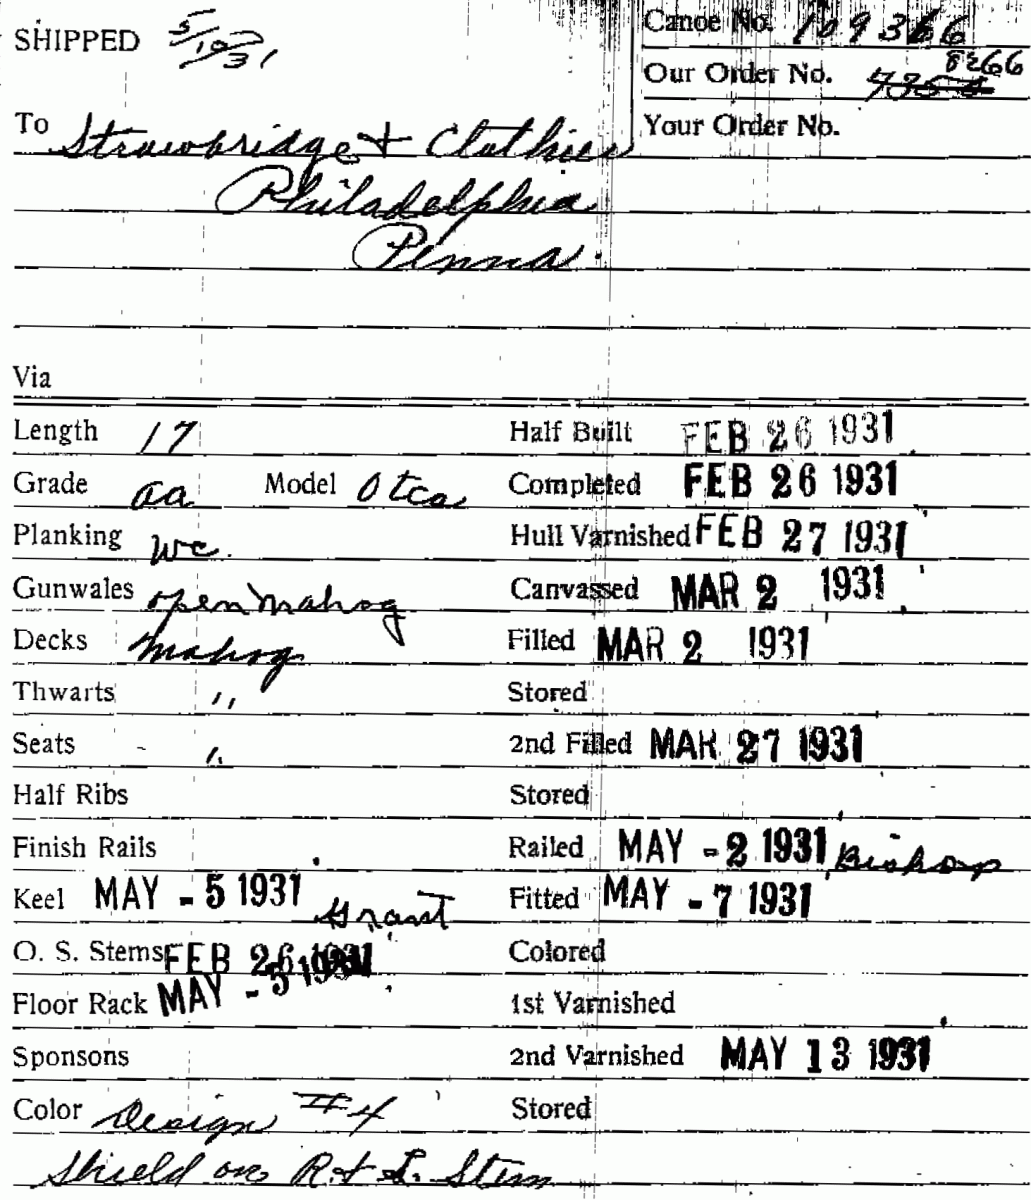 SHIPPED 5/19/31 Canoe No. 109366
8266
Our Order No.
To Strawbridge & Clothier Your Order No.
Philadelphia
Penna.
Via
Length 17 Half Built FEB 26 1931
Grade aa Model Otca Completed FEB 26 1931
Planking wc. Hull Varnished FEB 27 1931
Gunwales open mahog Canvassed MAR 2 1931
Decks mahog Filled MAR 2 1931
Thwarts " Stored
Seats " 2nd Filled MAR 27 1931
Half Ribs Stored
Finish Rails Railed MAY - 2 1931 Bishop
Keel MAY - 5 1931 Grant Fitted MAY - 7 1931
O. S. Stems FEB 26 1931 Colored
Floor Rack MAY - 5 1931 1st Varnished
Sponsons 2nd Varnished MAY 13 1931
Color Design #4 Stored
Shield on R & L. Stem